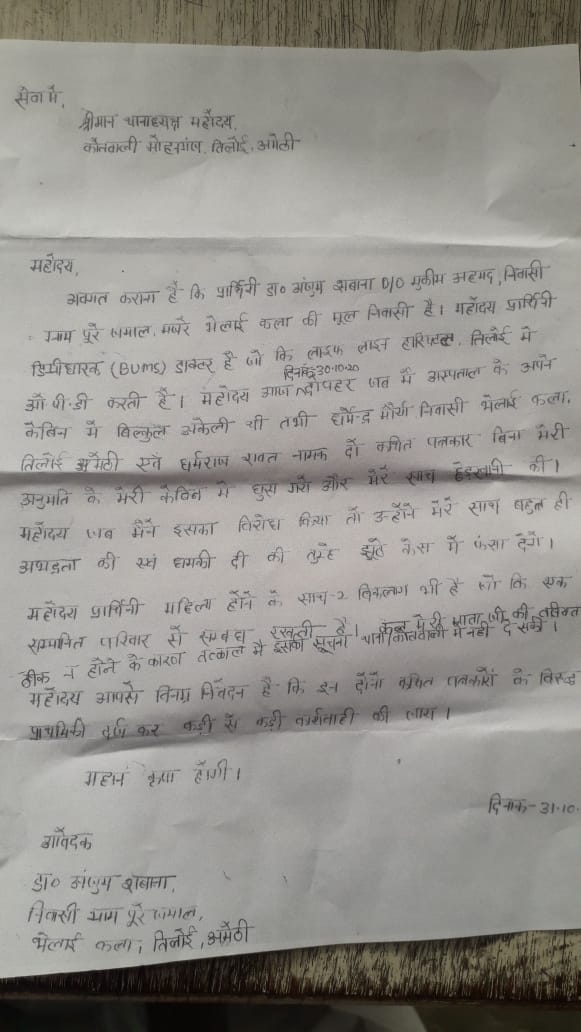 सेवा में,
श्रीमान थानाध्यक्ष महोदय,
कोतवाली मोहनगंज, तिलोई, अमेठी
महोदय,
अवगत कराना है कि प्रार्थिनी डा० अंजुम शबाना D/O मुकीम अहमद, निवासी
ग्राम पूरे जमाल, मजरे भेलाई कला की मूल निवासी है। महोदय प्रार्थिनी
डिग्रीधारक (BUMS) डाक्टर है जो कि लाइफ लाइन हास्पिटल, तिलोई में
ओ.पी.डी करती है। महोदय आज दिनांक 30.10.20 दोपहर जब मैं अस्पताल के अपने
केबिन में बिल्कुल अकेली थी तभी धर्मेन्द्र मौर्या निवासी भेलाई कला,
तिलोई अमेठी एवं धर्मराज रावत नामक दो कथित पत्रकार बिना मेरी
अनुमति के मेरी केबिन में घुस गये और मेरे साथ छेड़खानी की।
महोदय जब मैंने इसका विरोध किया तो उन्होंने मेरे साथ बहुत ही
अभद्रता की एवं धमकी दी की तुम्हे झूठे केस में फंसा देंगे।
महोदय प्रार्थिनी महिला होने के साथ-२ विकलांग भी है जो कि एक
सम्मानित परिवार से सम्बन्ध रखती है। मेरी माता जी की तबियत
ठीक न होने के कारण तत्काल मैं इसकी सूचना थाना कोतवाली में नहीं दे सकी।
महोदय आपसे विनम्र निवेदन है कि इन दोनों कथित पत्रकारों के विरुद्ध
प्राथमिकी दर्ज कर कड़ी से कड़ी कार्यवाही की जाय।
महान कृपा होगी।
दिनांक-31.10.
आवेदक
डा० अंजुम शबाना,
निवासी ग्राम पूरे जमाल,
भेलाई कला, तिलोई, अमेठी